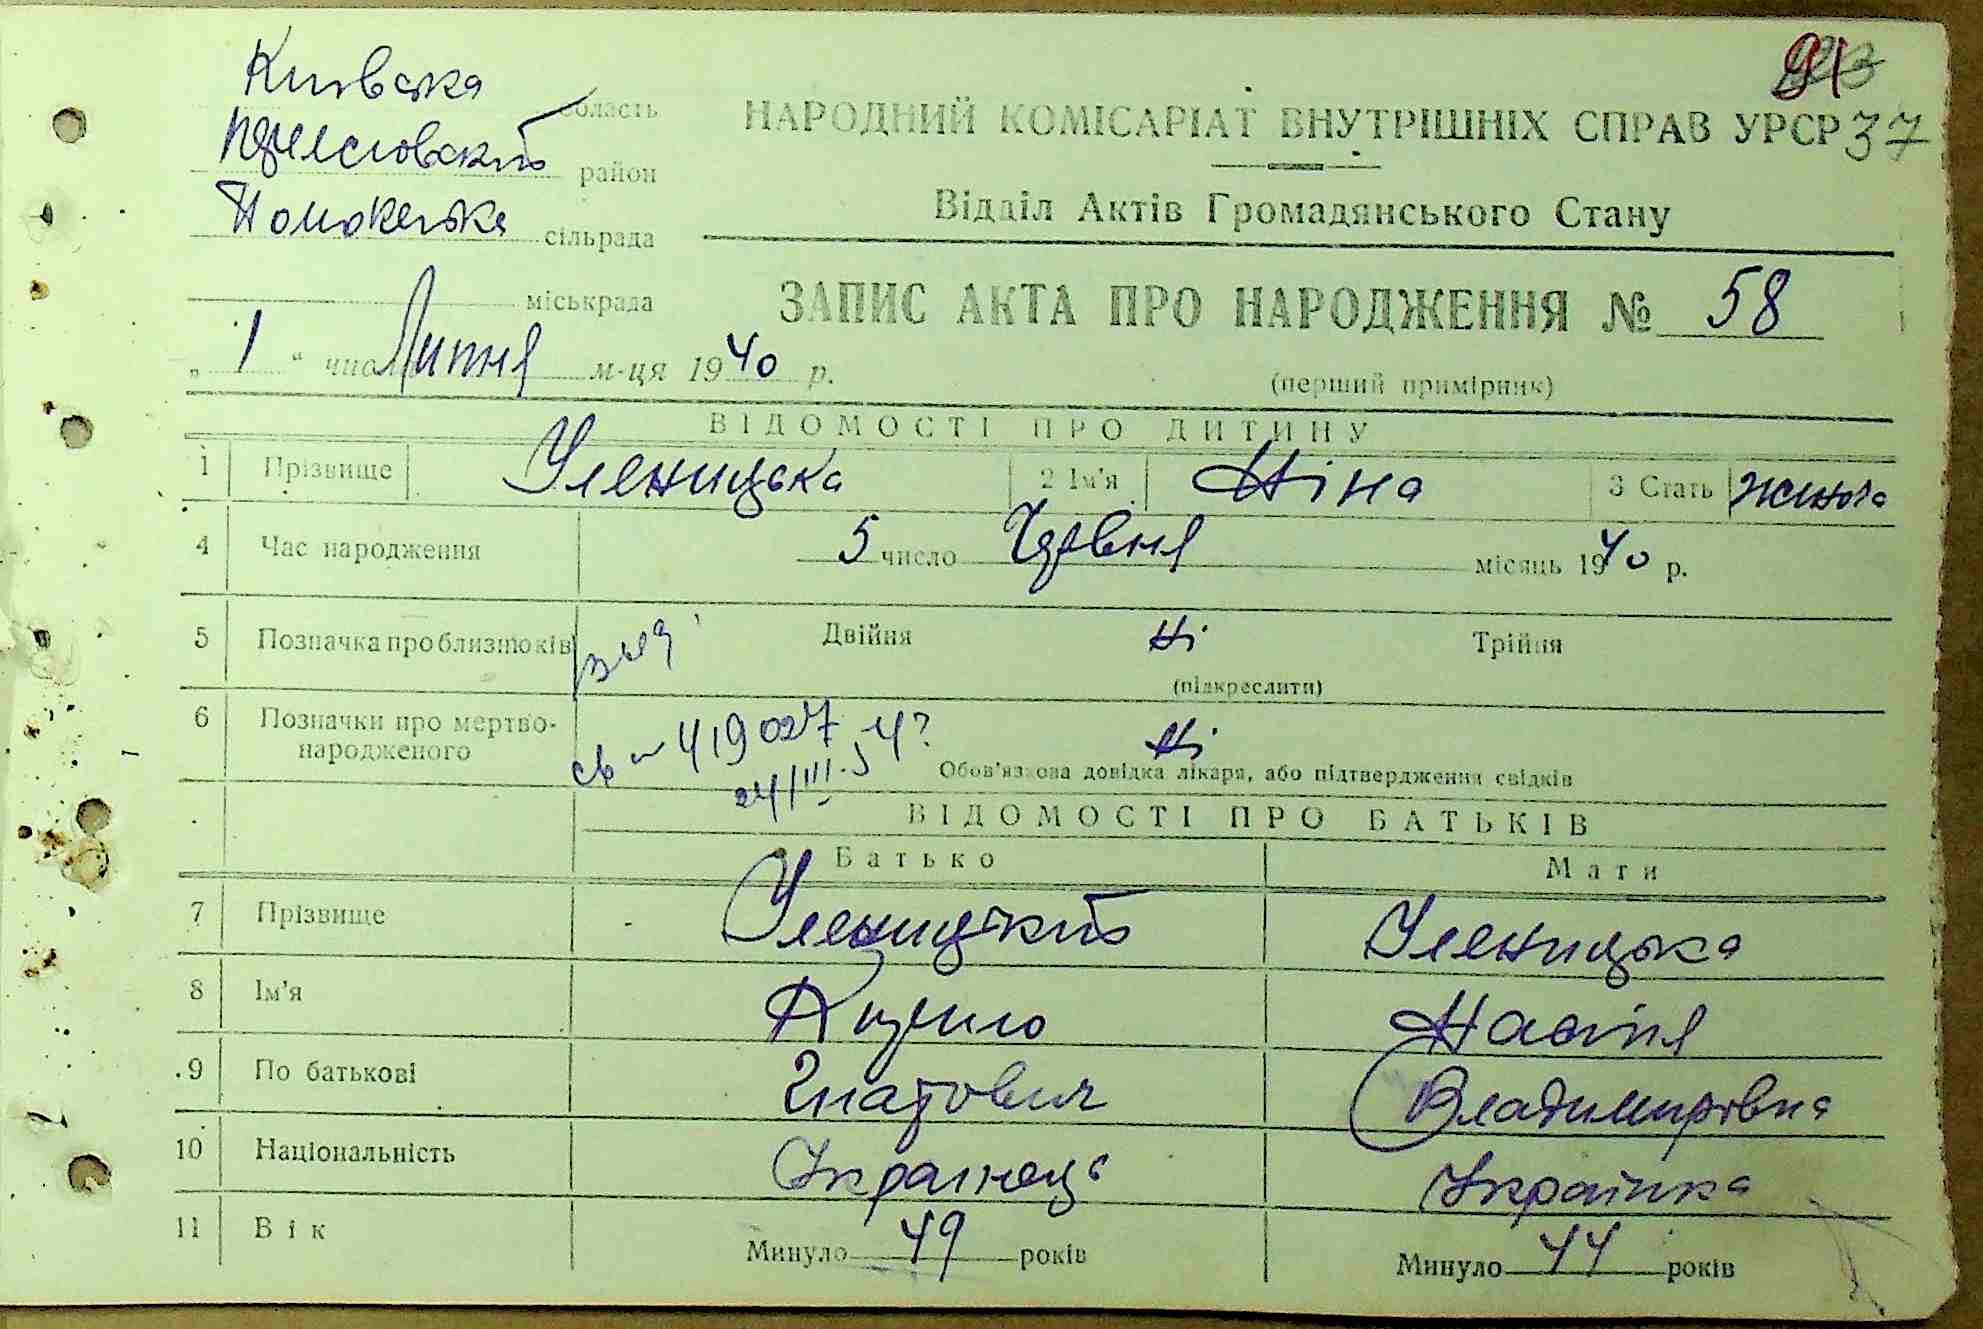 Київська область
район
сільрада
міськрада
„ 1 “ число Липня м-ця 1940 р.
91
37
НАРОДНИЙ КОМІСАРІАТ ВНУТРІШНІХ СПРАВ УРСР
Відділ Актів Громадянського Стану
ЗАПИС АКТА ПРО НАРОДЖЕННЯ № 58
(перший примірник)
ВІДОМОСТІ ПРО ДИТИНУ
1 Прізвище Уленицька 2 Ім'я Ніна 3 Стать жіноча
4 Час народження 5 число Червня місяць 1940 р.
5 Позначка про близнюків Двійня Ні Трійня
(підкреслити)
6 Позначки про мертво-
народженого Ні
св № 419027
24/III.
Обов'язкова довідка лікаря, або підтвердження свідків
ВІДОМОСТІ ПРО БАТЬКІВ
Батько Мати
7 Прізвище Уленицький Уленицька
8 Ім'я Кирило Настя
9 По батькові Гнатович Владимировна
10 Національність Українець Українка
11 Вік Минуло 49 років Минуло 44 років